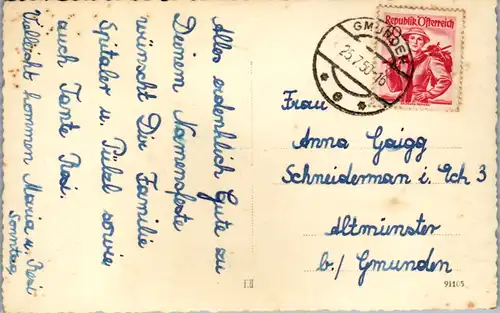 Alles erdenklich Gute zu
Deinem Namensfeste
wünscht Dir Familie
Spitaler u. Pükel sowie
auch Tante Resi.
Vielleicht kommen Maria u. Resi
Sonntag
GMUNDEN
25.7.50-16
Republik Österreich
Frau
Anna Gaigg
Schneiderman i. Eck 3
Altmünster
b./ Gmunden
91105